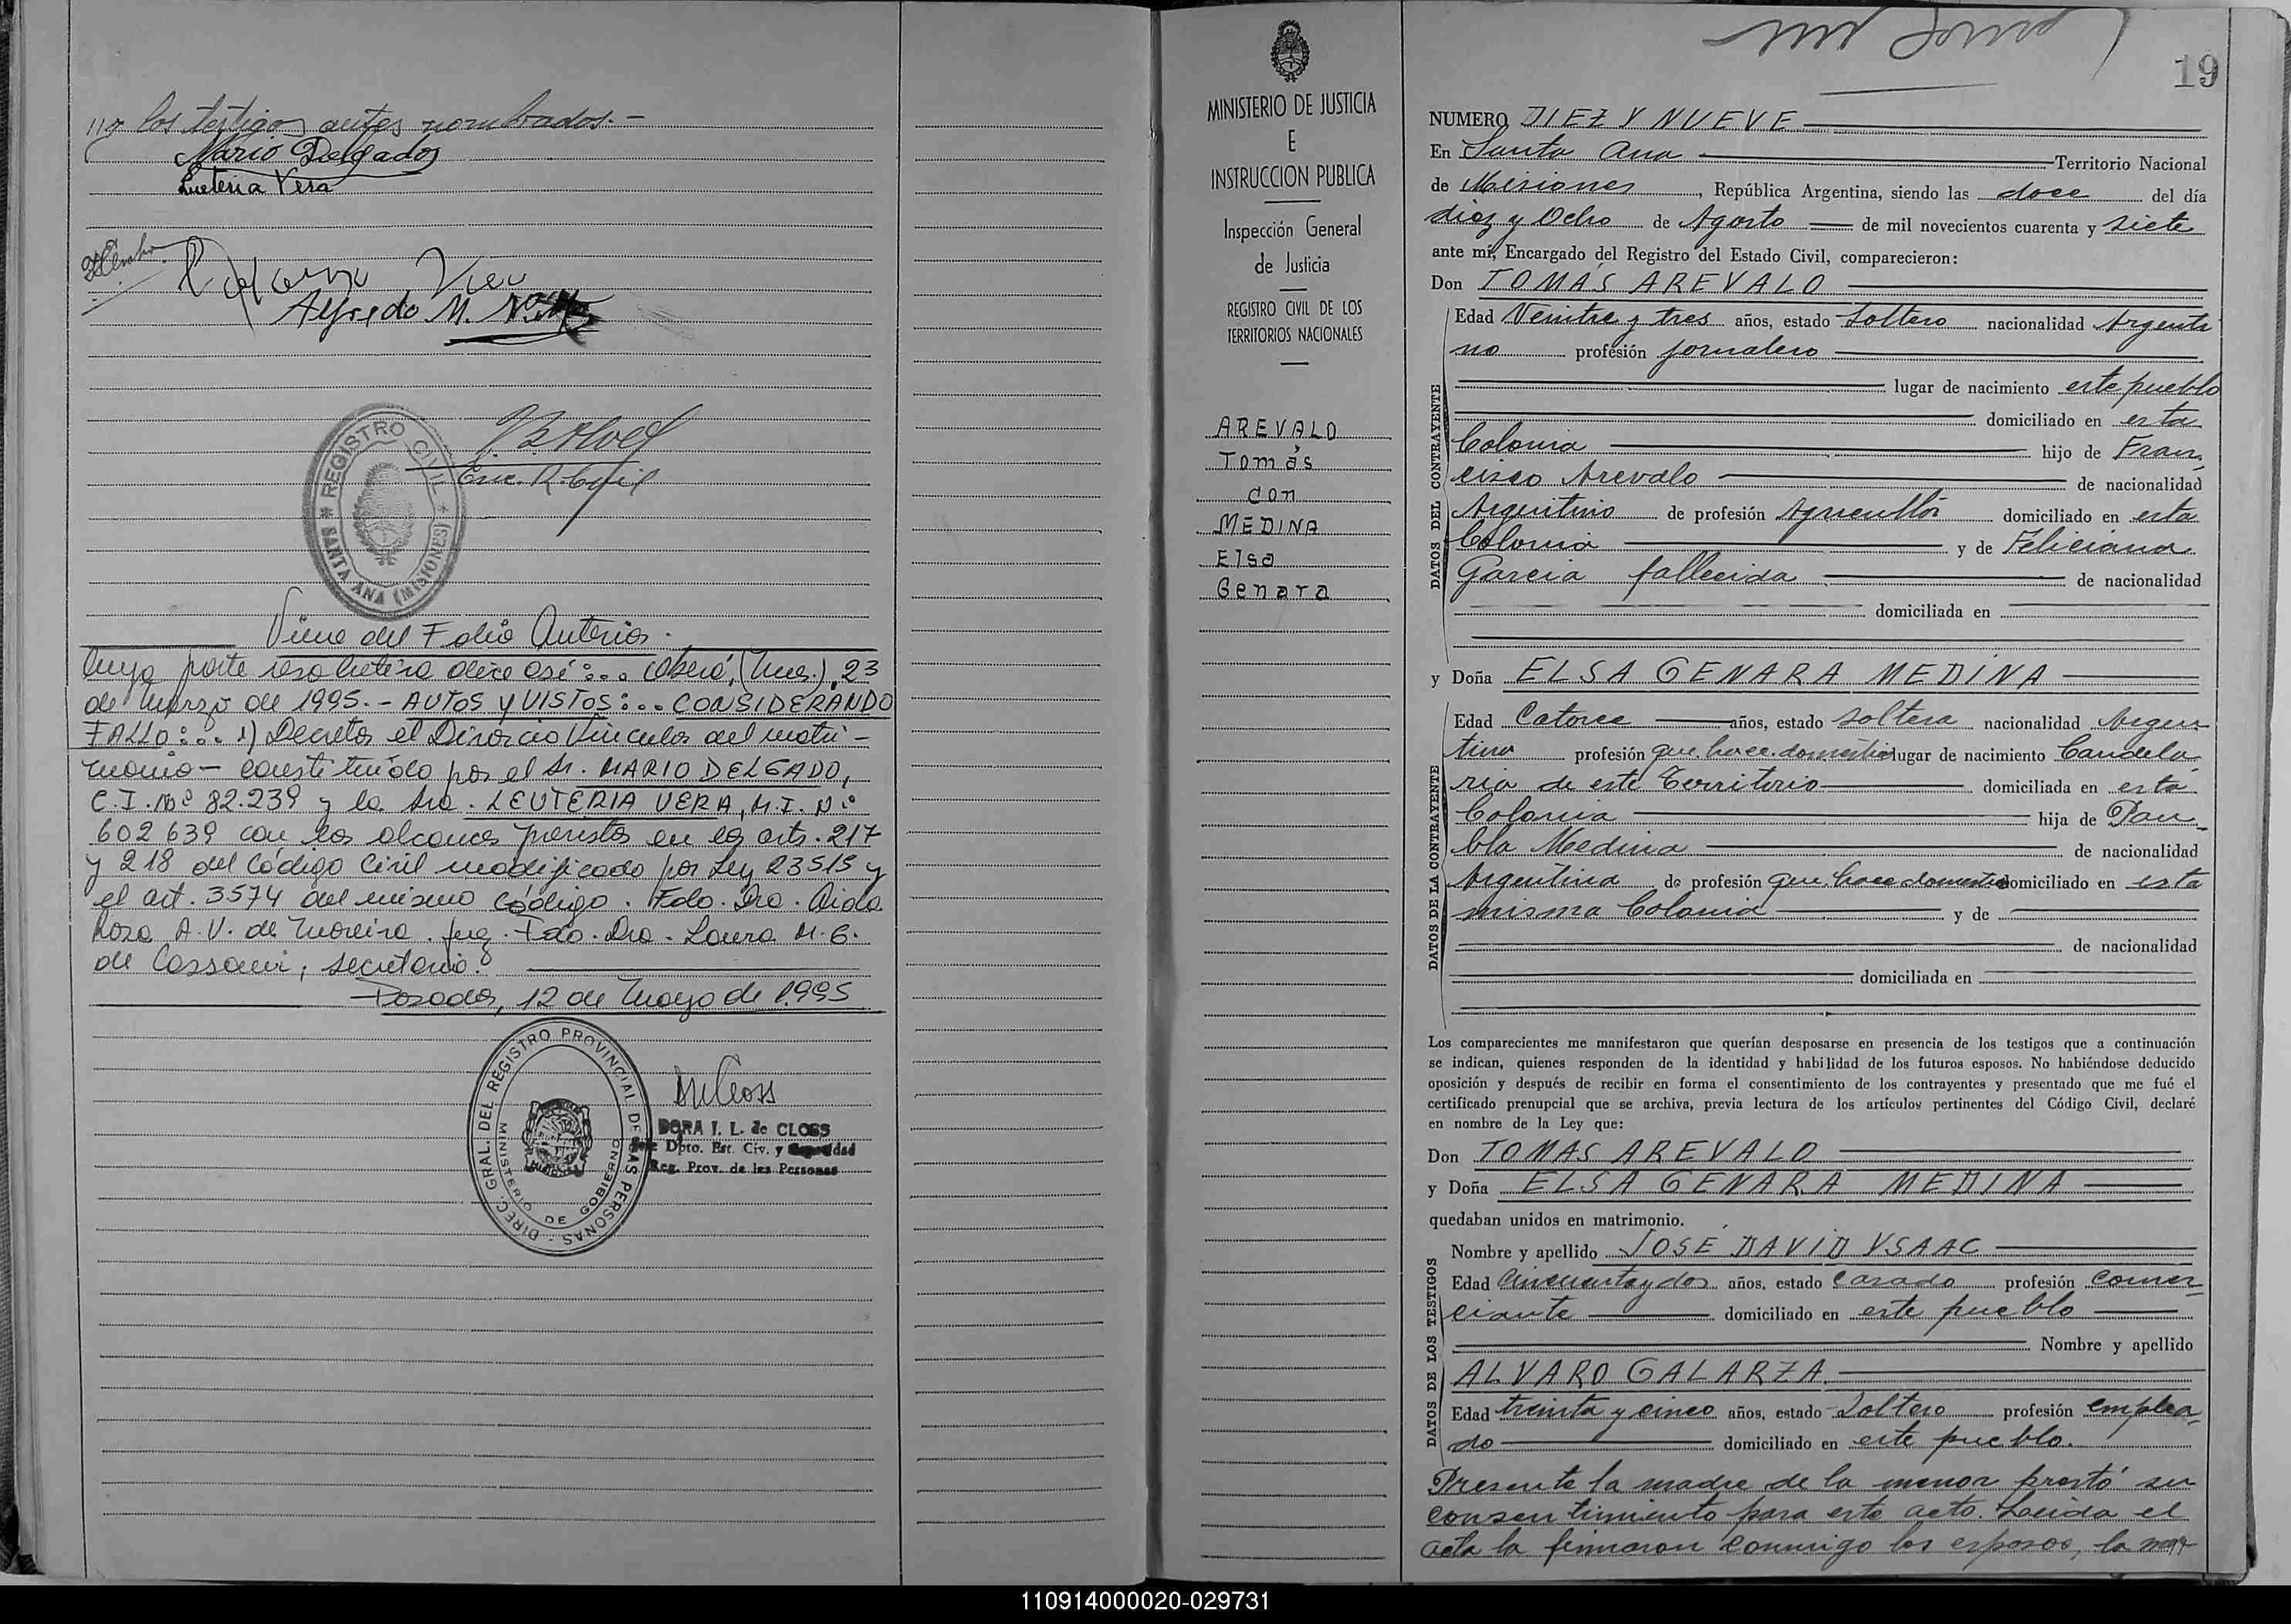 los testigos antes nombrados.-
Mario Delgado
Luteria Vera
Alfredo M.
Enc. R. Civil
REGISTRO CIVIL
SANTA ANA (MISIONES)
Viene del Folio Anterior.
Cuya parte resolutiva dice así:... Oberá, (Mnes.), 23
de Marzo de 1995.- AUTOS Y VISTOS:... CONSIDERANDO
FALLO:... 1) Decretar el Divorcio Vincular del matri-
monio - constituído por el Sr. MARIO DELGADO,
C.I. Nº 82.239 y la Sra. LEUTERIA VERA, M.I. Nº
602 639 con los alcances previstos en los arts. 217
y 218 del Código Civil modificado por Ley 23515 y
el art. 3574 del mismo código. Fdo. Dra. Aida
Rosa A.V. de Moreira. Juez. Fdo. Dra. Laura M. G.
de Cassoni, secretaria.
Posadas, 12 de Mayo de 1.995
DIREC. GRAL. DEL REGISTRO PROVINCIAL DE LAS PERSONAS
MINISTERIO DE GOBIERNO
DORA I. L. de CLOSS
Jefe Dpto. Est. Civ. y
Reg. Prov. de las Personas
MINISTERIO DE JUSTICIA
E
INSTRUCCION PUBLICA
Inspección General
de Justicia
REGISTRO CIVIL DE LOS
TERRITORIOS NACIONALES
AREVALO
Tomás
con
MEDINA
Elsa
Genara
19
NUMERO DIEZ Y NUEVE
En Santa Ana Territorio Nacional
de Misiones, República Argentina, siendo las doce del día
diez y Ocho de Agosto de mil novecientos cuarenta y siete
ante mí, Encargado del Registro del Estado Civil, comparecieron:
Don TOMÁS AREVALO
DATOS DEL CONTRAYENTE
Edad Veintre y tres años, estado Soltero nacionalidad Argenti
no profesión jornalero
lugar de nacimiento este pueblo
domiciliado en esta
Colonia hijo de Fran-
cisco Arevalo de nacionalidad
Argentino de profesión Agricultor domiciliado en esta
Colonia y de Feliciana
Garcia fallecida de nacionalidad
domiciliada en
y Doña ELSA GENARA MEDINA
DATOS DE LA CONTRAYENTE
Edad Catorce años, estado soltera nacionalidad Argen
tina profesión que hace. domestico lugar de nacimiento Candela
ria de este Territorio domiciliada en esta
Colonia hija de Pau-
bla Medina de nacionalidad
Argentina de profesión que hace domestic domiciliado en esta
misma Colonia y de
de nacionalidad
domiciliada en
Los comparecientes me manifestaron que querían desposarse en presencia de los testigos que a continuación
se indican, quienes responden de la identidad y habilidad de los futuros esposos. No habiéndose deducido
oposición y después de recibir en forma el consentimiento de los contrayentes y presentado que me fué el
certificado prenupcial que se archiva, previa lectura de los artículos pertinentes del Código Civil, declaré
en nombre de la Ley que:
Don TOMAS AREVALO
y Doña ELSA GENARA MEDINA
quedaban unidos en matrimonio.
DATOS DE LOS TESTIGOS
Nombre y apellido JOSE DAVID YSAAC
Edad Cincuenta y dos años, estado Casado profesión Comer-
ciante domiciliado en este pueblo
Nombre y apellido
ALVARO GALARZA.
Edad treinta y cinco años, estado Soltero profesión emplea-
do domiciliado en este pueblo.
Presente la madre de la menor prestó su
consentimiento para este acto. Leída el
acta la firmaron conmigo los esposos, la
110914000020-029731